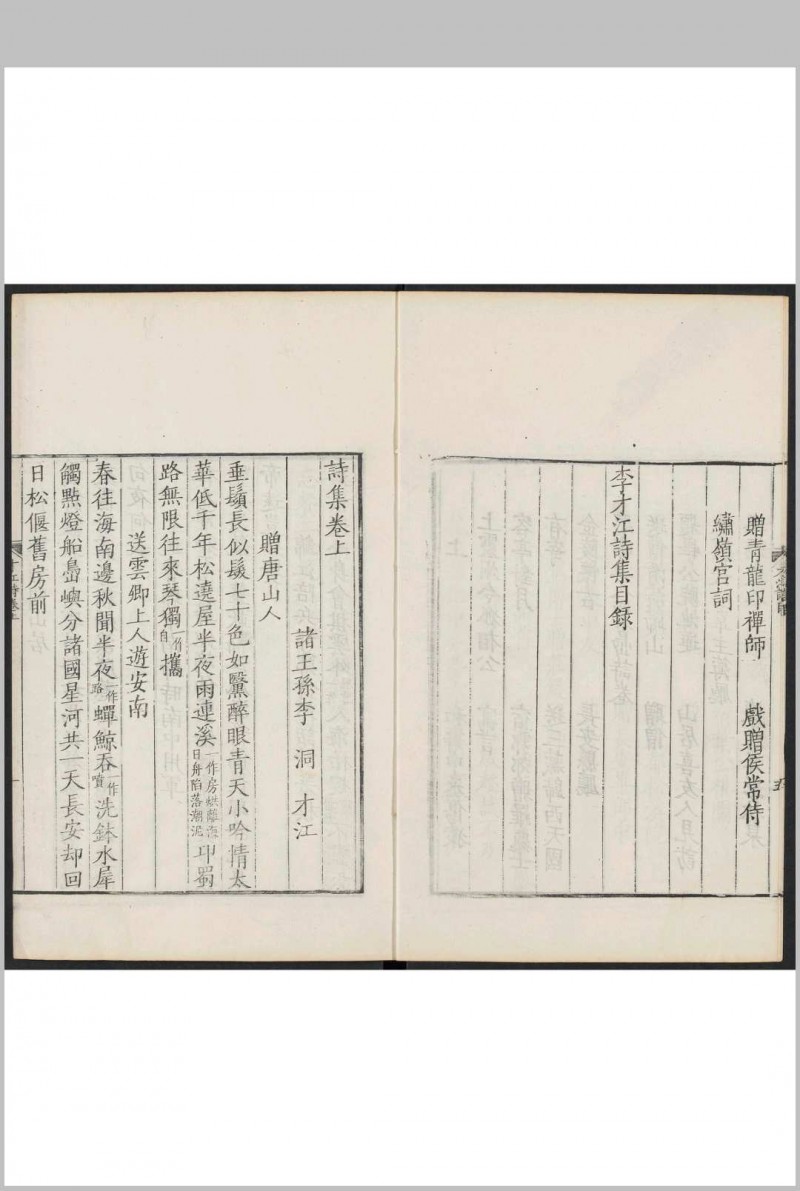 贈青龍印禪師　戲贈侯常侍
繡嶺宮詞
李才江詩集目錄
詩集卷上
諸王孫李　洞　才江
贈唐山人
垂鬚長似髮七十色如黳醉眼青天小吟情太
華低千年松遶屋半夜雨連溪一作房烘離海日舟陷落潮泥邛蜀
路無限往來琴獨一作自攜
送雲卿上人遊安南
春往海南邊秋聞半夜一作路蟬鯨吞一作噴洗鉢水犀
觸點燈船島嶼分諸國星河共一天長安却回
日松偃舊房前